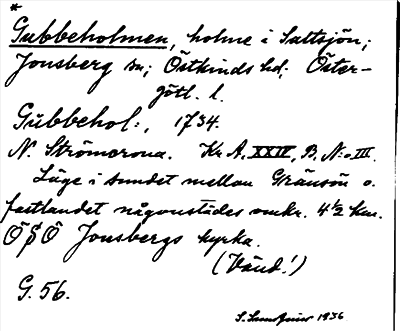 *
Gubbeholmen, holme i Saltsjön;
Jonsberg sn; Östkinds hd. Öster-
götl. l.
Gubbehol:, 1734.
N. Strömcrona. Kr. A. XXIV, B. N:o III.
Läge i sundet mellan Gränsön o.
fastlandet någonstädes omkr. 4½ km.
Ö S Ö Jonsbergs kyrka.
(Vänd!)
G. 56.
1936